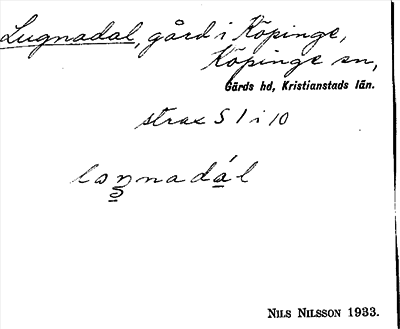 Lugnadal, gård i Köpinge,
Köpinge sn,
Gärds hd, Kristianstads län.
strax S 1 i 10
loŋnadál
NILS NILSSON 1933.